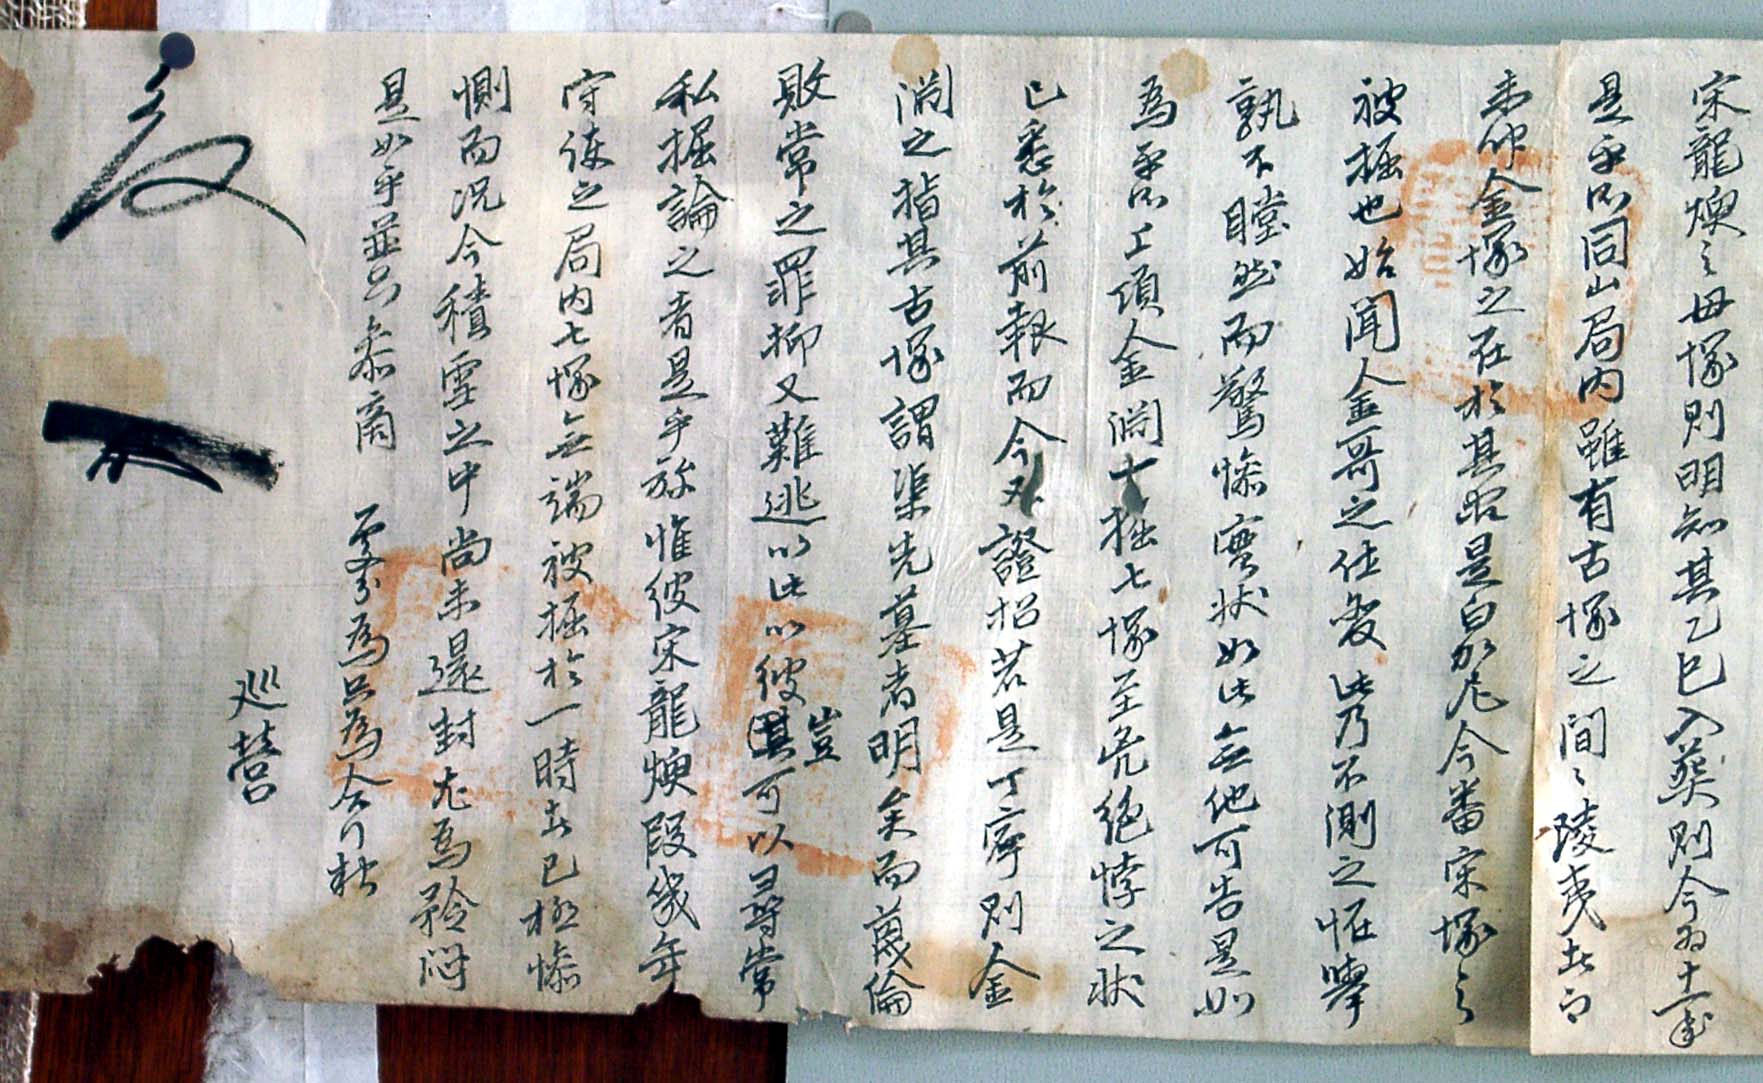 宋龍煥之母塚則明知其乙巳入葬則今為十一年
是乎所同山局内雖有古塚之間〻陵夷是乎
未卯金塚之在於其處是白加尼今番宋塚之
被掘也始聞人金哥之仕發此乃不測之怪擧
孰不瞠然而驚慘實狀如此無他可告是如
為乎所上項人金淵十掘七塚至凶絶悖之狀
已悉於前報而今又證招若是丁寧則金
淵之指其古塚謂渠先墓者明矣而蔑倫
敗常之罪抑又難逃以此以彼豈可以尋常
私掘論之者是乎旀惟彼宋龍煥段幾年
守護之局内七塚無端被掘於一時是已極慘
惻而況今積雪之中尚未還封尤為矜悶
是如乎並只叅商 處分為只為合行牒
巡營